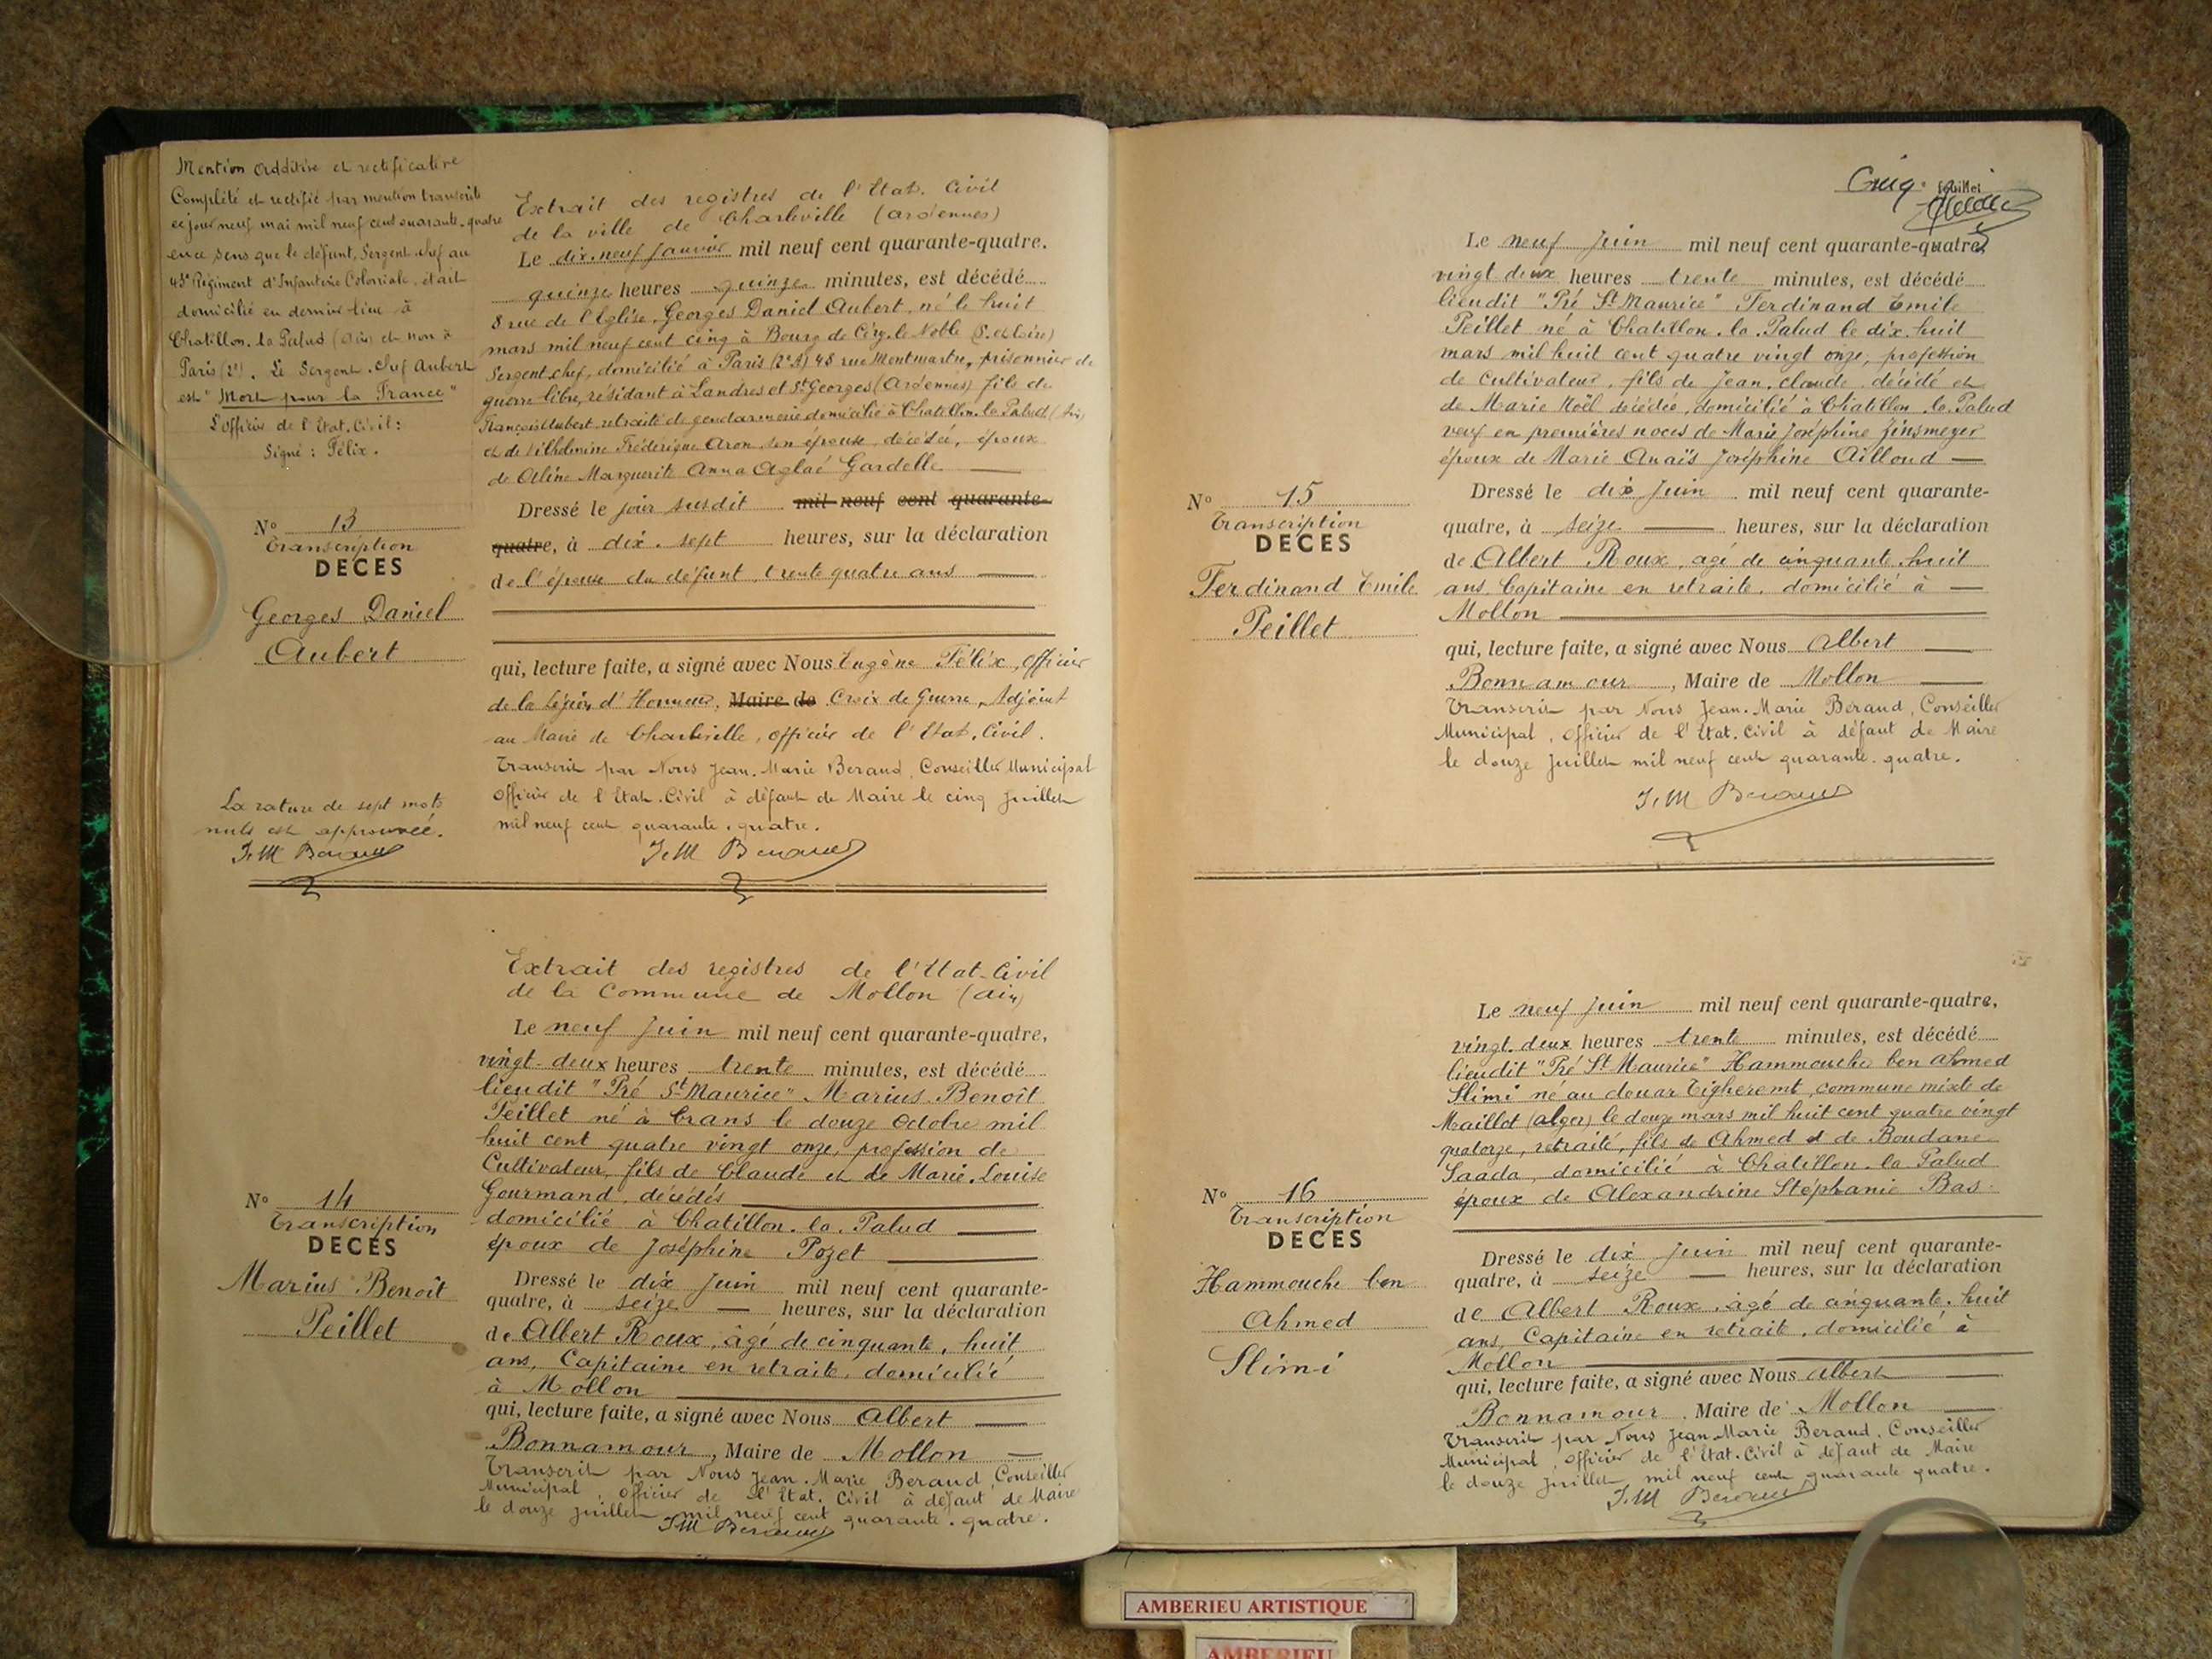 Mention additive et rectificative
Complété et rectifié par mention transcrite
ce jour neuf mai mil neuf cent quarante-quatre
en ce sens que le défunt, Sergent-Chef au
43e Régiment d'Infanterie Coloniale, était
domicilié en dernier lieu à
Chatillon-la-Palud (Ain) et non à
Paris (2e). Le Sergent-Chef Aubert
est "Mort pour la France"
L'officier de l'Etat-Civil:
Signé: Félix.
N° 13
Transcription
DECES
Georges Daniel
Aubert
La rature de sept mots
nuls est approuvée.
J.M Beraud
Extrait des registres de l'Etat-Civil
de la ville de Charleville (ardennes)
Le dix-neuf Janvier mil neuf cent quarante-quatre,
quinze heures quinze minutes, est décédé
8 rue de l'Eglise, Georges Daniel Aubert, né le huit
mars mil neuf cent cinq à Bourg de Ciry-le-Noble (S. et Loire)
Sergent-chef, domicilié à Paris (2e A) 48 rue Montmartre, prisonnier de
guerre libre, résidant à Landres et St Georges (Ardennes) fils de
François Aubert, retraité de gendarmerie domicilié à Chatillon-la-Palud (Ain)
et de Wilhelmine Frédérique Aron son épouse, décédée, époux
de Oline Marguerite Anna Aglaé Gardelle
Dressé le jour susdit mil neuf cent quarante-
quatre, à dix-sept heures, sur la déclaration
de l'épouse du défunt, trente quatre ans
qui, lecture faite, a signé avec Nous Eugène Félix, Officier
de la Légion d'Honneur, Maire de Croix de Guerre, Adjoint
au Maire de Charleville, officier de l'Etat-Civil.
Transcrit par Nous Jean-Marie Beraud, Conseiller Municipal
Officier de l'Etat-Civil à défaut de Maire le cinq Juillet
mil neuf cent quarante-quatre.
J.M Beraud
N° 14
Transcription
DECES
Marius Benoît
Peillet
Extrait des registres de l'Etat-Civil
de la Commune de Mollon (Ain)
Le neuf Juin mil neuf cent quarante-quatre,
vingt-deux heures trente minutes, est décédé
lieudit "Pré St Maurice" Marius Benoît
Peillet né à Crans le douze Octobre mil
huit cent quatre vingt onze, profession de
Cultivateur, fils de Claude et de Marie-Louise
Gourmand, décédés
domicilié à Chatillon-la-Palud
époux de Joséphine Pozet
Dressé le dix Juin mil neuf cent quarante-
quatre, à seize heures, sur la déclaration
de Albert Roux, âgé de cinquante-huit
ans, Capitaine en retraite, domicilié
à Mollon
qui, lecture faite, a signé avec Nous Albert
Bonnamour, Maire de Mollon
Transcrit par Nous Jean-Marie Beraud, Conseiller
Municipal, Officier de l'Etat-Civil à défaut de Maire
le douze Juillet mil neuf cent quarante-quatre.
J.M Beraud
Cinq feuillet
N° 15
Transcription
DECES
Ferdinand Emile
Peillet
Le neuf Juin mil neuf cent quarante-quatre,
vingt deux heures trente minutes, est décédé
lieudit "Pré St Maurice" Ferdinand Emile
Peillet né à Chatillon-la-Palud le dix-huit
mars mil huit cent quatre vingt onze, profession
de Cultivateur, fils de Jean-Claude, décédé et
de Marie Noël décédée, domicilié à Chatillon-la-Palud
veuf en premières noces de Marie Joséphine Zinsmeyer
époux de Marie Anaïs Joséphine Ailloud
Dressé le dix Juin mil neuf cent quarante-
quatre, à seize heures, sur la déclaration
de Albert Roux, agé de cinquante-huit
ans, Capitaine en retraite, domicilié à
Mollon
qui, lecture faite, a signé avec Nous Albert
Bonnamour, Maire de Mollon
Transcrit par Nous Jean-Marie Beraud, Conseiller
Municipal, Officier de l'Etat-Civil à défaut de Maire
le douze Juillet mil neuf cent quarante-quatre.
J.M Beraud
N° 16
Transcription
DECES
Hammouche ben
Ahmed
Slimi
Le neuf Juin mil neuf cent quarante-quatre,
vingt-deux heures trente minutes, est décédé
lieudit "Pré St Maurice" Hammouche ben Ahmed
Slimi né au douar Tigheremt, commune mixte de
Maillot (alger) le douze mars mil huit cent quatre vingt
quatorze, retraité, fils de Ahmed et de Boudane
Saada, domicilié à Chatillon-la-Palud
époux de Alexandrine Stéphanie Bas
Dressé le dix Juin mil neuf cent quarante-
quatre, à seize heures, sur la déclaration
de Albert Roux, âgé de cinquante-huit
ans, Capitaine en retrait, domicilié à
Mollon
qui, lecture faite, a signé avec Nous Albert
Bonnamour, Maire de Mollon
Transcrit par Nous Jean-Marie Beraud, Conseiller
Municipal, Officier de l'Etat-Civil à défaut de Maire
le douze Juillet mil neuf cent quarante quatre.
J.M Beraud
AMBERIEU ARTISTIQUE
AMBERIEU